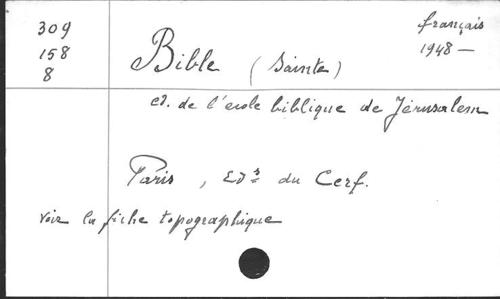 309
158
8
français
1948 —
Bible (Sainte)
éd. de l'école biblique de Jérusalem
Paris, Éds du Cerf.
voir la fiche topographique